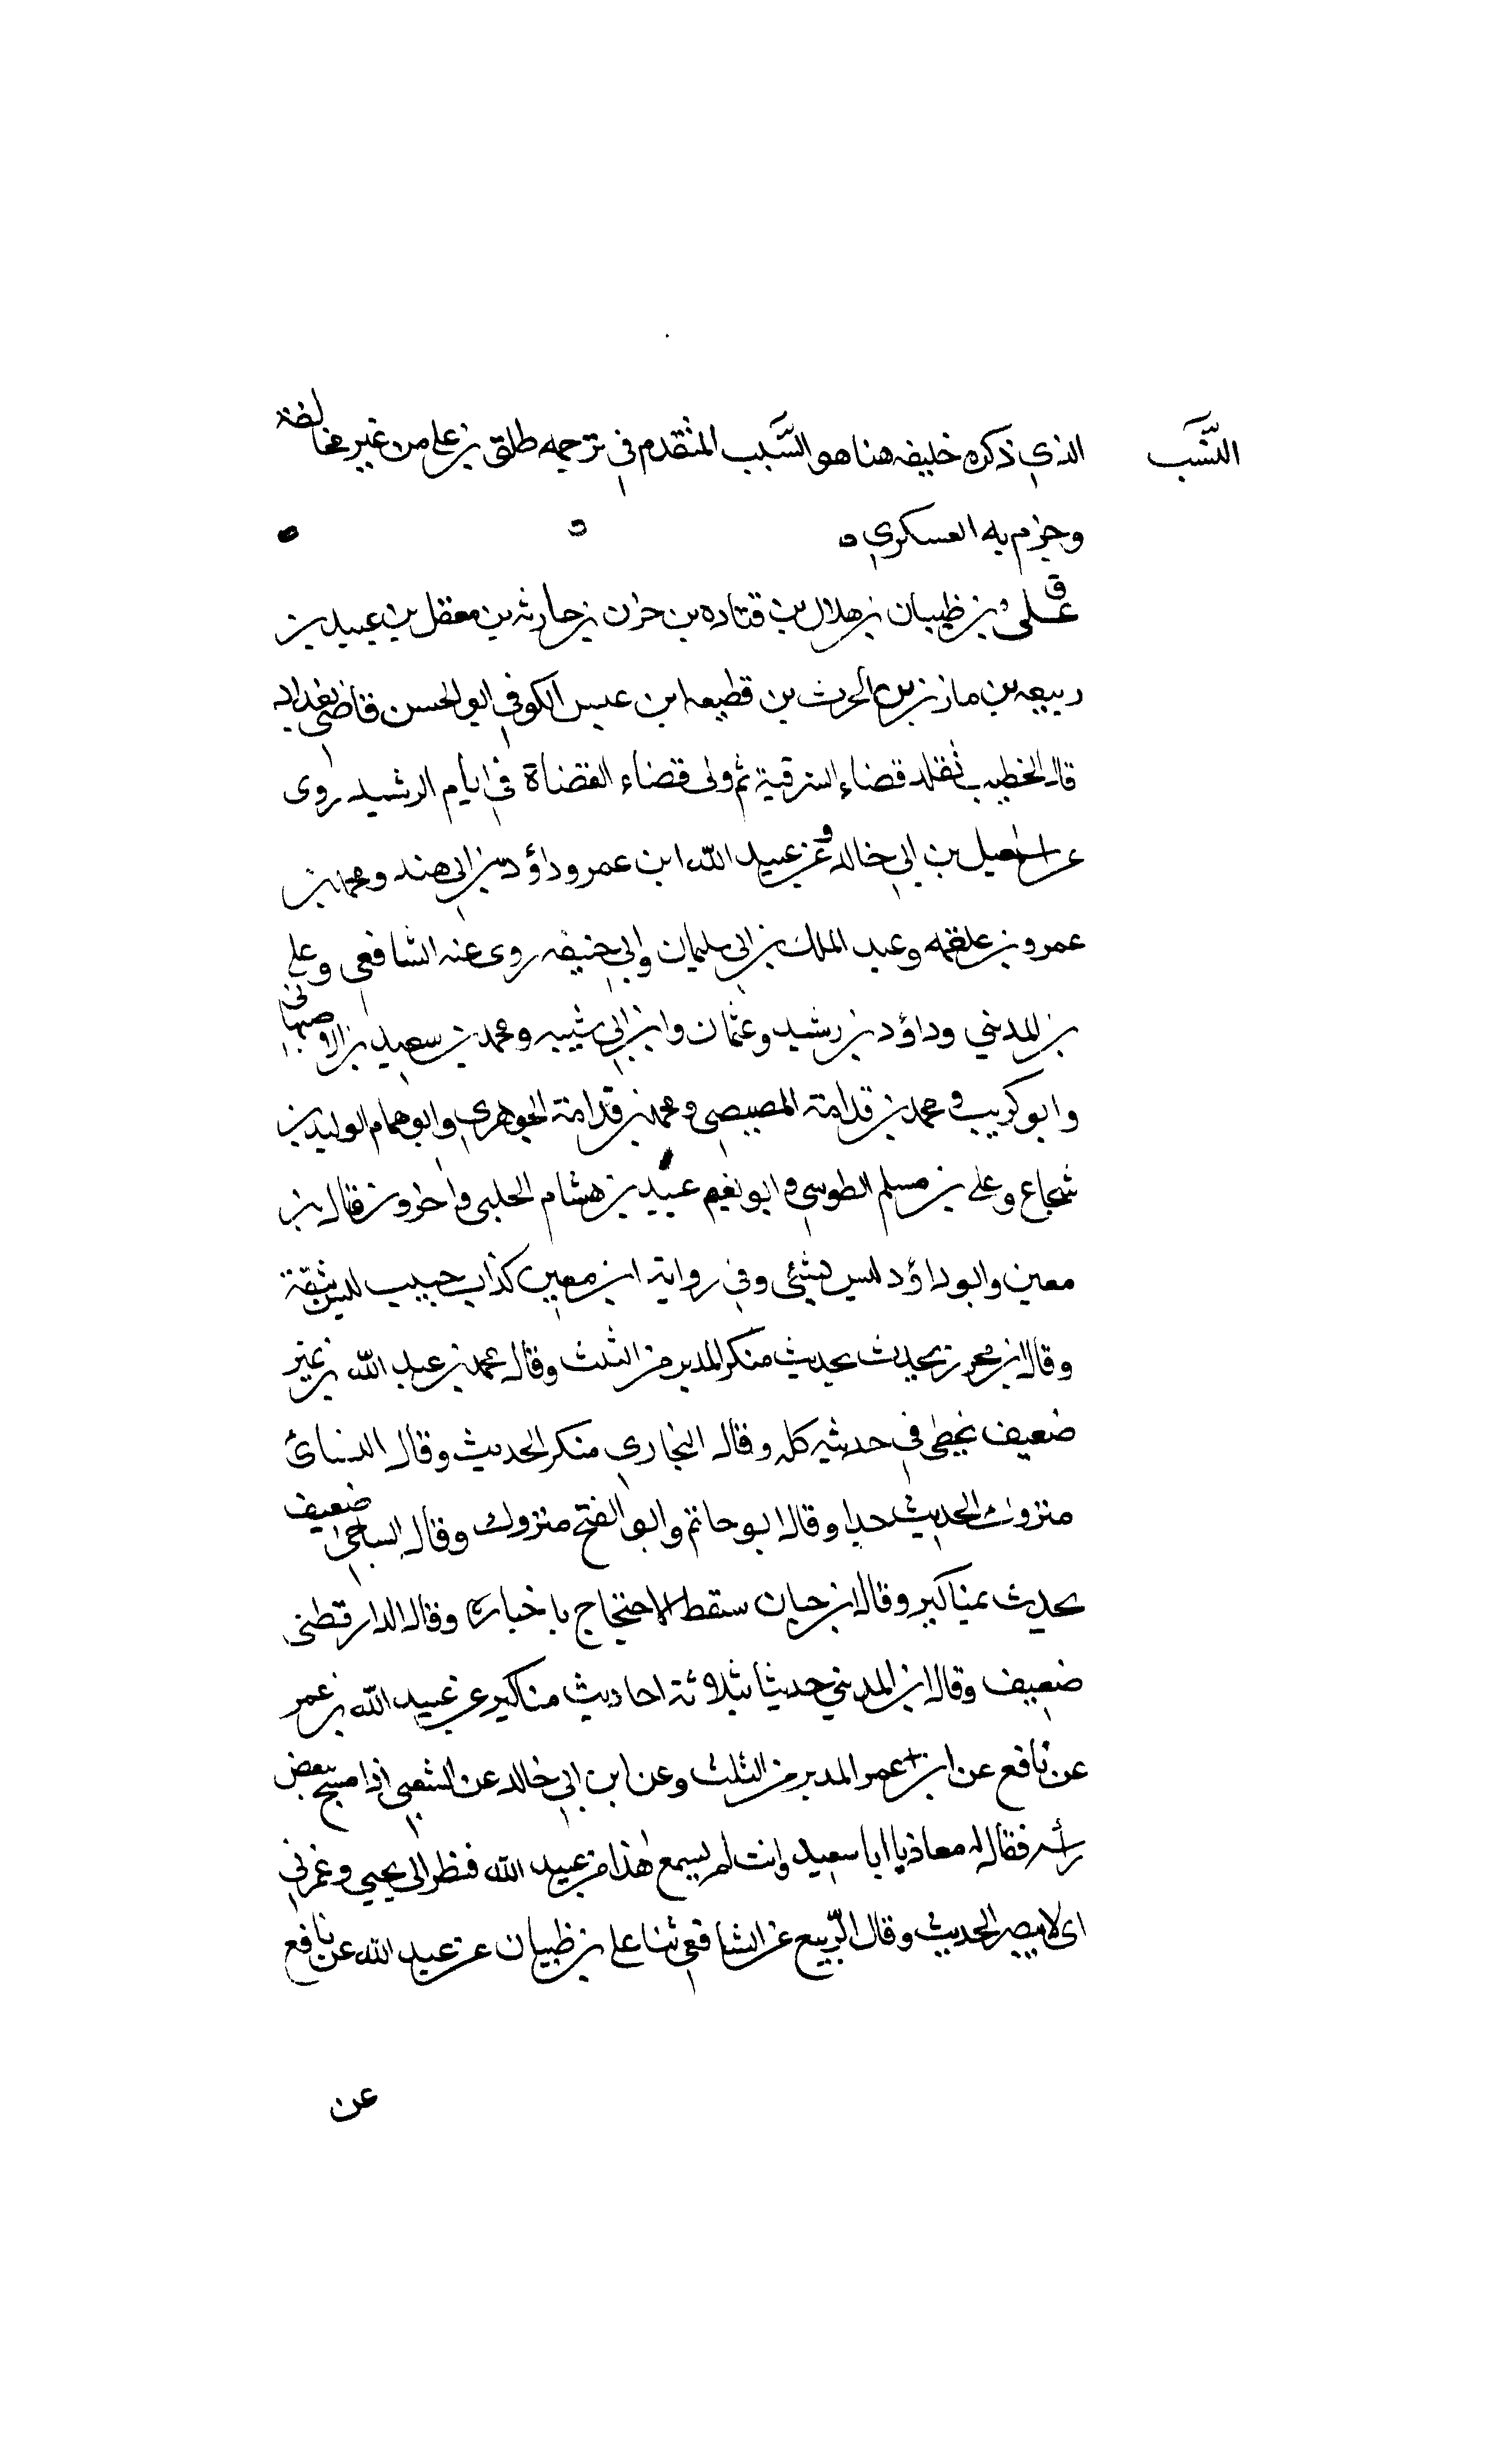 النسَّب الذي ذكره خليفه هنا هو السَّبب المتقدم في ترجمه طلق بن علي من غير مخالفة
وجزم به العسكري ه ه
ق علي بن ظبيان بن هلال بن قتاده بن حزن بن حارثه بن معقل بن عبيد بن
ربيعه بن مازن بن الحرث بن قطيعه ابن عبس الكوفي ابو الحسن قاضي بغداد
قال الخطيب تقلد قضاء الشرقية ثم ولى قضاء القضاة في ايام الرشيد روى
عن اسمعيل بن ابي خالد وعن عبيد الله ابن عمر وداؤد بن ابي هند ومحمد بن
عمرو بن علقمه وعبد الملك بن ابي سليمان وابي حنيفه روى عنه الشافعي وعلي
بن المديني وداؤد بن رشيد وعثمان وابن ابي شيبه ومحمد بن سعيد بن الاصبهاني
وابو كريب و محمد بن قدامة المصيصي ومحمد بن قدامة الجوهري وابو همام الوليد بن
شجاع وعلي بن مسلم الطوسي وابو نعيم عبيد بن هشام الحلبي واخرون قال ابن
معين وابو داؤد ليس بشئ وفي رواية ابن معين كذاب خبيث ليس بثقة
وقال ابن محرز يحدث بحديث منكر المدبر من الثلث وقال محمد بن عبد الله بن نمير
ضعيف يخطى في حديثه كله وقال البخاري منكر الحديث وقال النسائ
متروك الحديث حدا وقال ابو حاتم وابو الفتح متروك وقال الساجي ضعيف
يحدث بمناكير وقال ابن حبان سقط الاحتجاج باخباره وقال الدارقطنى
ضعيف وقال ابن المديني حديثا بثلاثة احاديث مناكير عن عبيد الله بن عمر
عن نافع عن ابن عمر المدبر من الثلث وعن ابن ابي خالد عن الشعبي اذا مسح ببعض
رأسه فقال له معاذ يا ابا سعيد وانت لم تسمع هذا من عبيد الله فنظر الى يحيى وغمزني
اى لا يبصر الحديث وقال الرّبيع عن الشافعي ثنا علي بن ظبيان عن عبيد الله عن نافع
عن